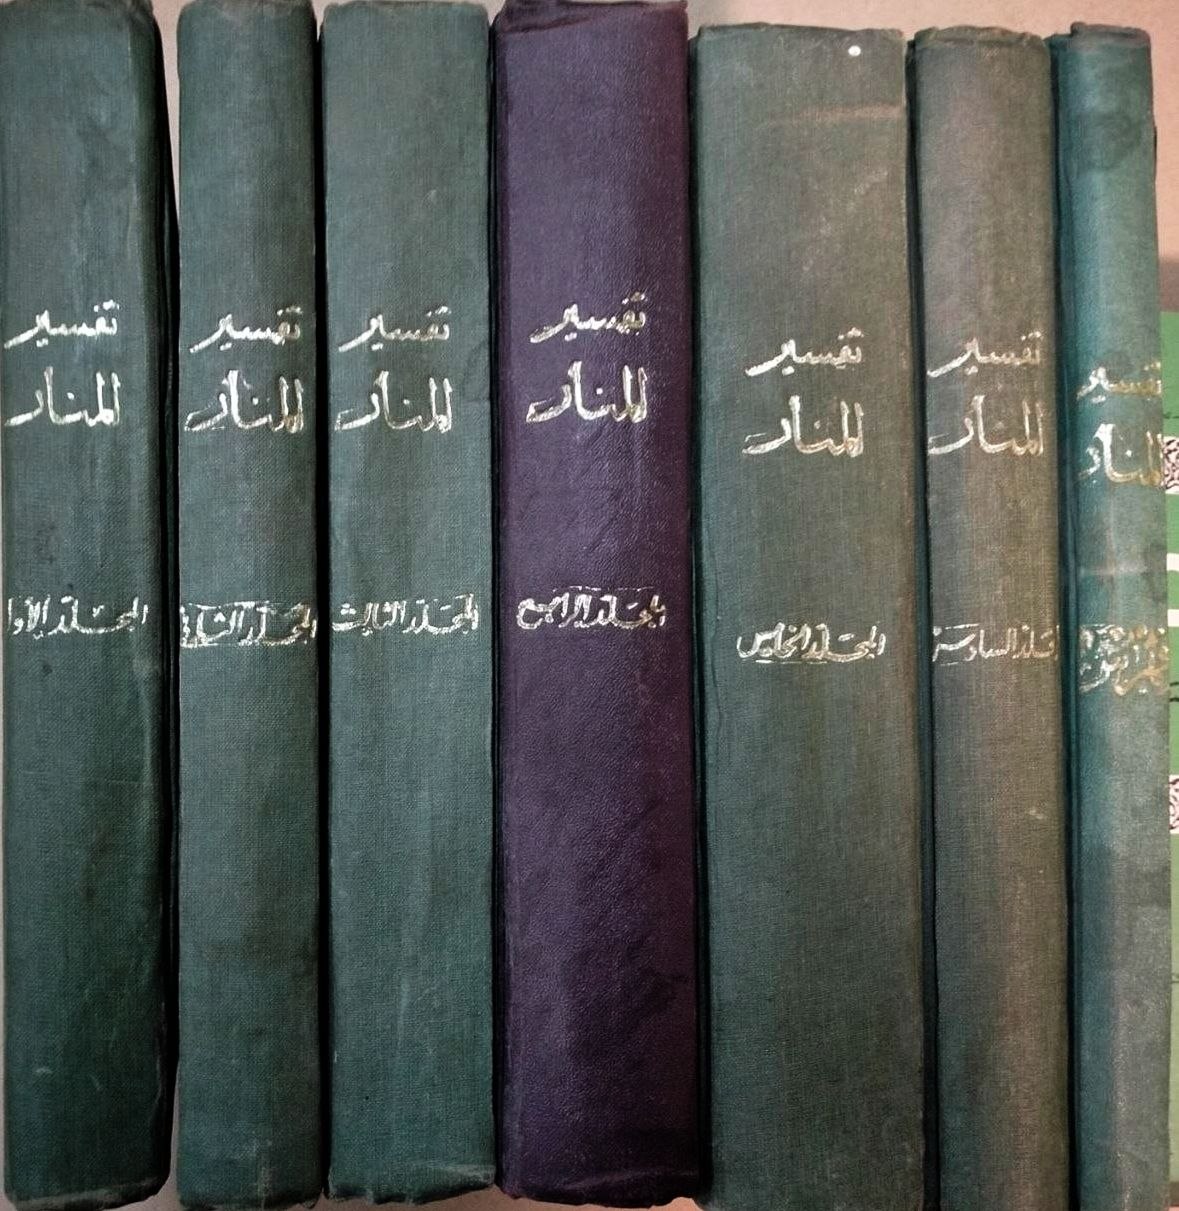 تفسير
المنار
المجلد الأول
تفسير
المنار
المجلد الثاني
تفسير
المنار
المجلد الثالث
تفسير
المنار
المجلد الرابع
تفسير
المنار
المجلد الخامس
تفسير
المنار
المجلد السادس
تفسير
المنار